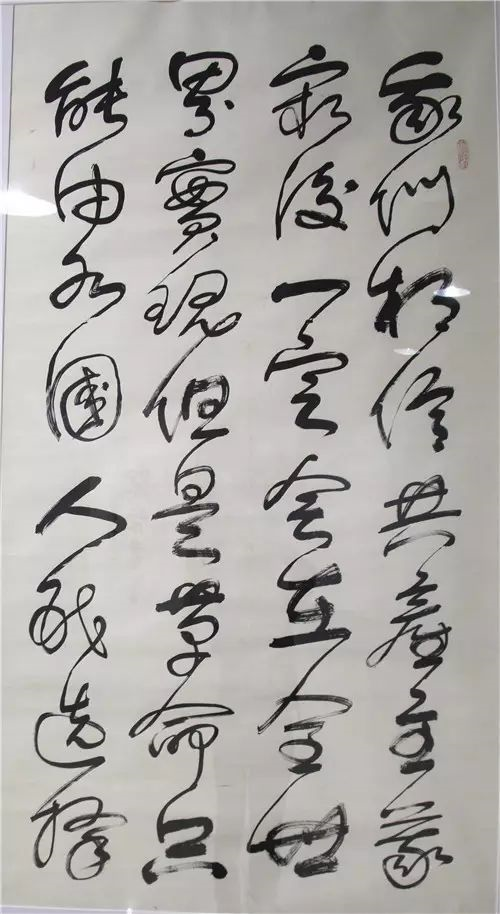 我们相信共產主義
最後一定会在全世
界實現但是革命只
能由各國人民选擇